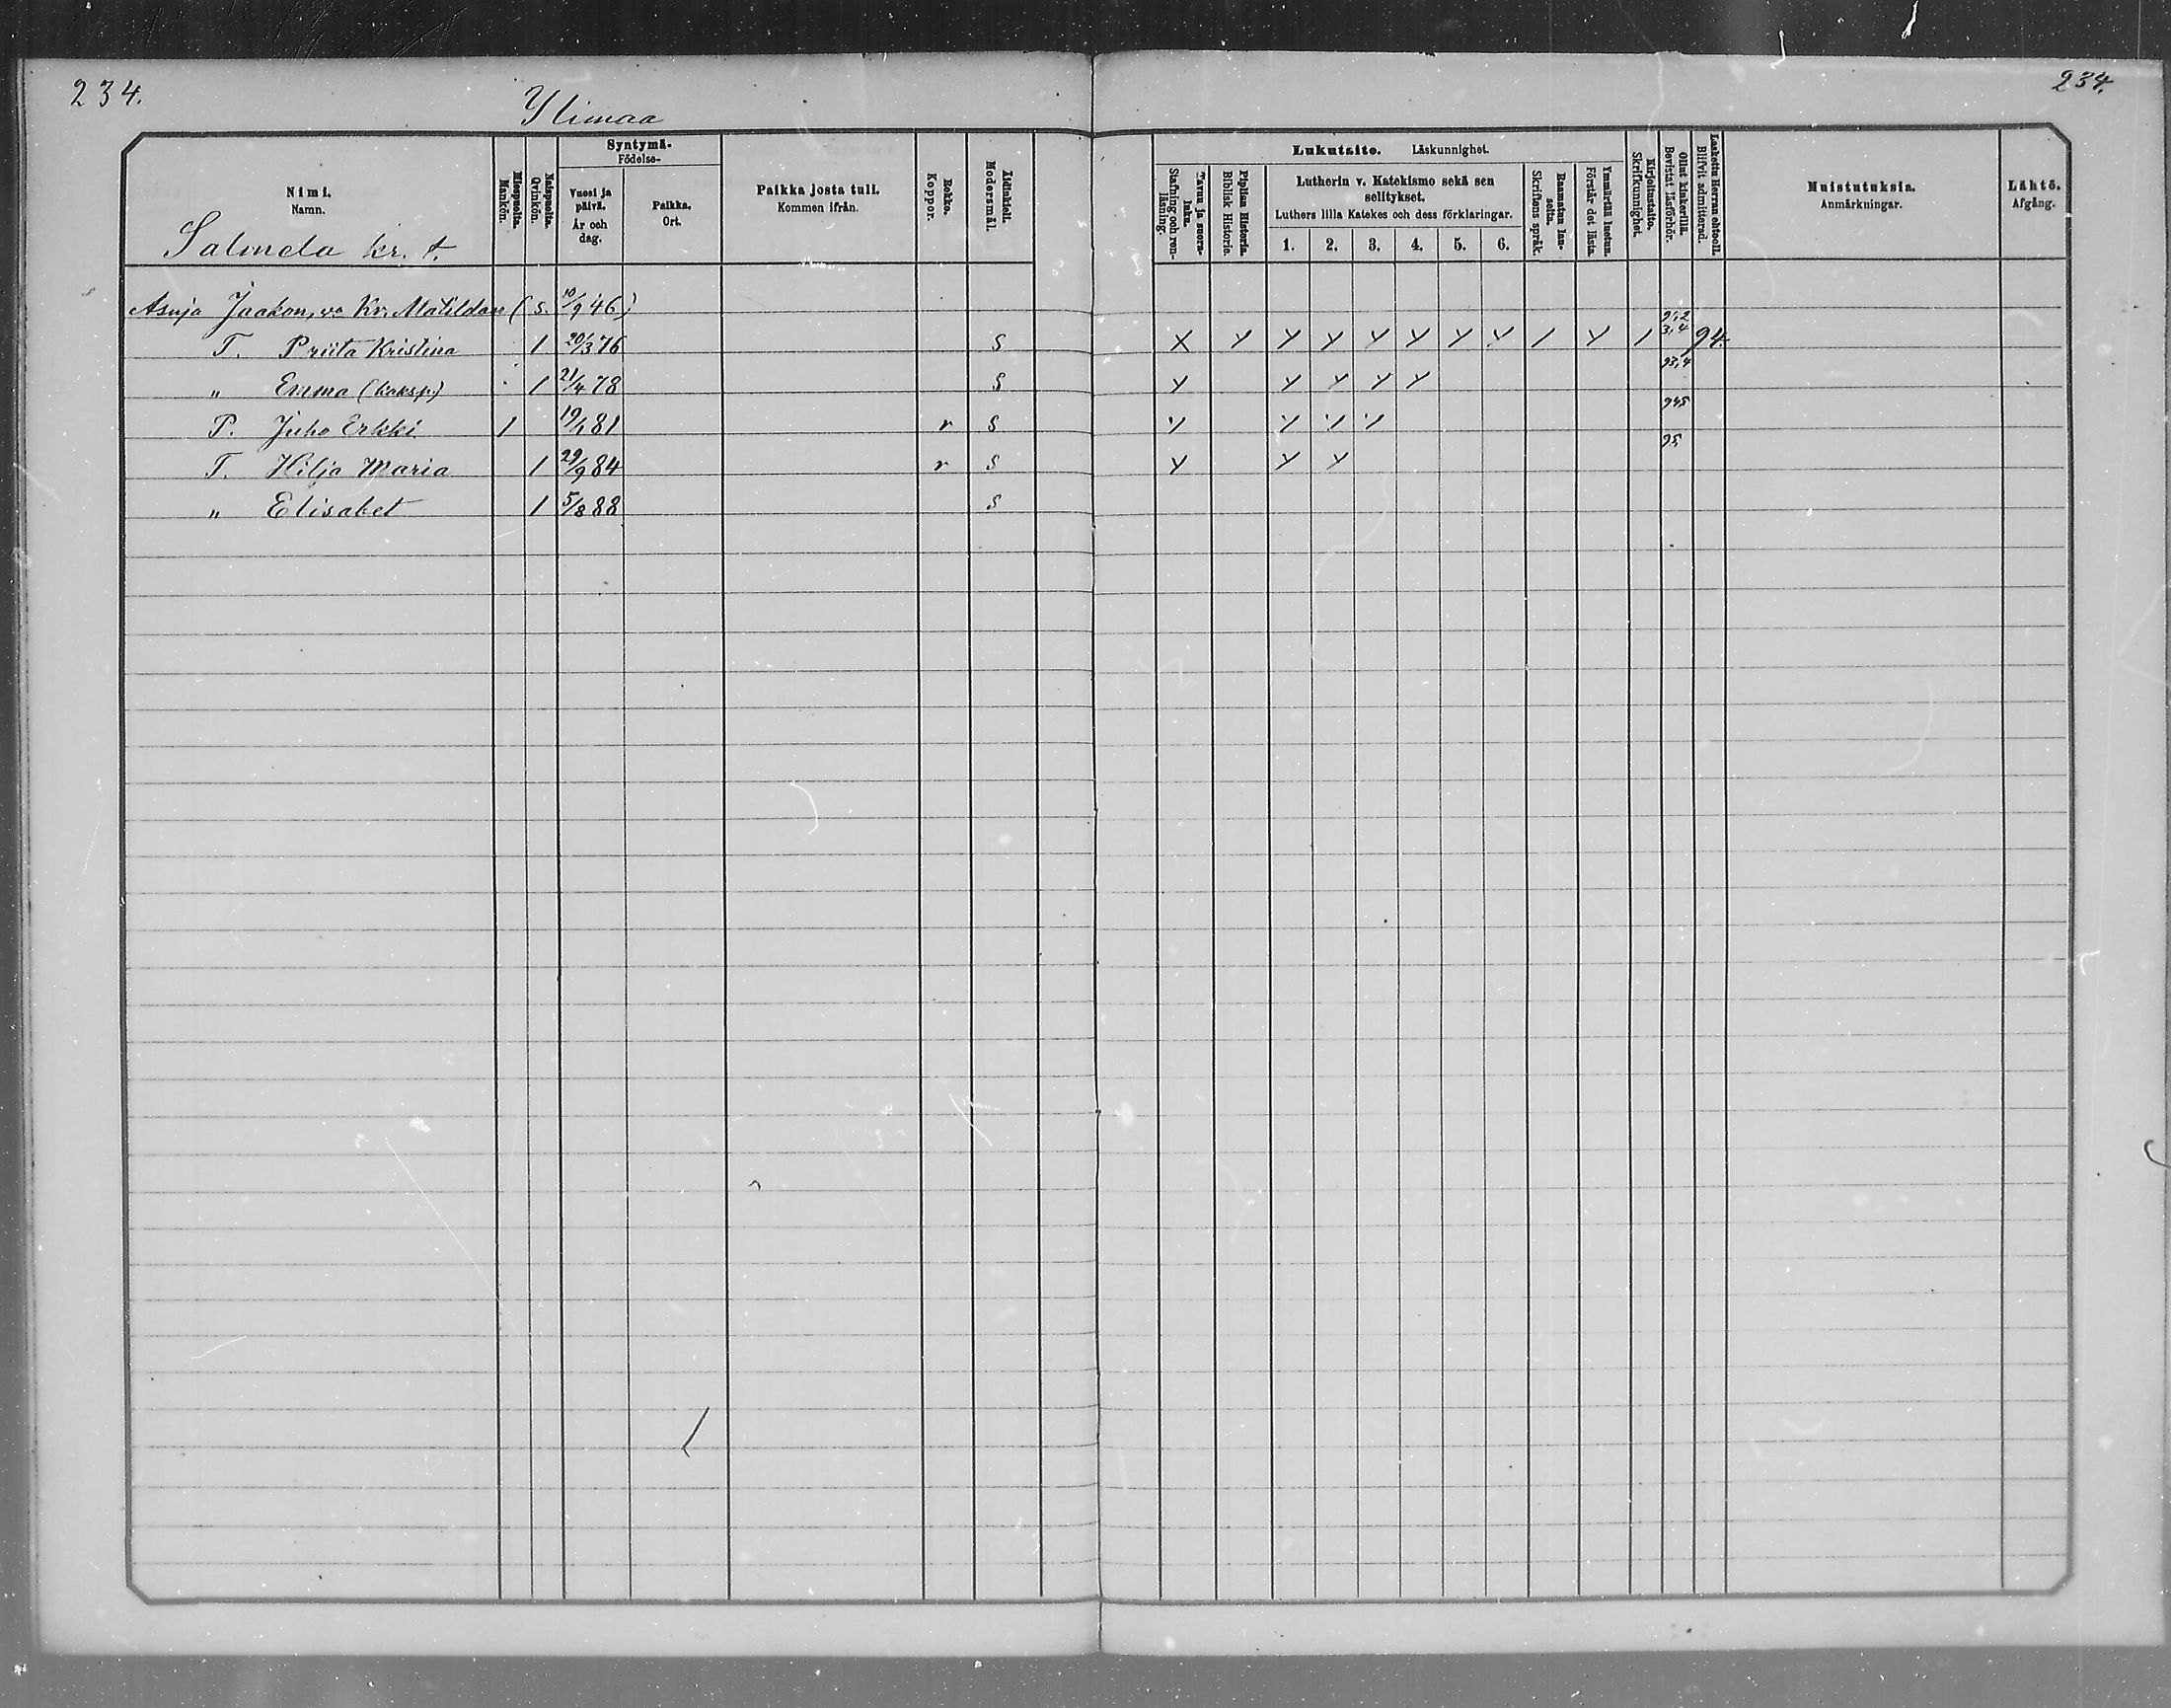 234.
234.
Ylimaa
Nimi.
Namn.
Salmela kr. t.
Miespuolta.
Mankön.
Naispuolta.
Qvinkön.
Syntymä-
Födelse-
Vuosi ja päivä.
År och dag.
Paikka.
Ort.
Paikka josta tuli.
Kommen ifrån.
Rokko.
Koppor.
Äidinkieli.
Modersmål.
Lukutaito. Läskunnighet.
Tavuu ja suora-luku.
Stafning och ren-läsning.
Piplian Historia.
Biblisk Historie.
Lutherin v. Katekismo sekä sen selitykset.
Luthers lilla Katekes och dess förklaringar.
1. 2. 3. 4. 5. 6.
Raamatun lau-seita.
Skriftens språk.
Ymmärtää luetun.
Förstår det lästa.
Kirjoitustaito.
Skrifkunnighet.
Ollut kinkerillä.
Bevistat läsförhör.
Laskettu Herran ehtooll.
Blifvit admitterad.
Muistutuksia.
Anmärkningar.
Lähtö.
Afgång.
Asuja Jaakon, vo Kr. Matildan (s. 10/9 46)
T. Priita Kristina 1 20/3 76 S 94.
" Emma (kaksp.) 1 21/4 78 S 93,4
P. Juho Erkki 1 19/1 81 r S 945
T. Hilja Maria 1 29/9 84 r S 95
" Elisabet 1 5/8 88 S